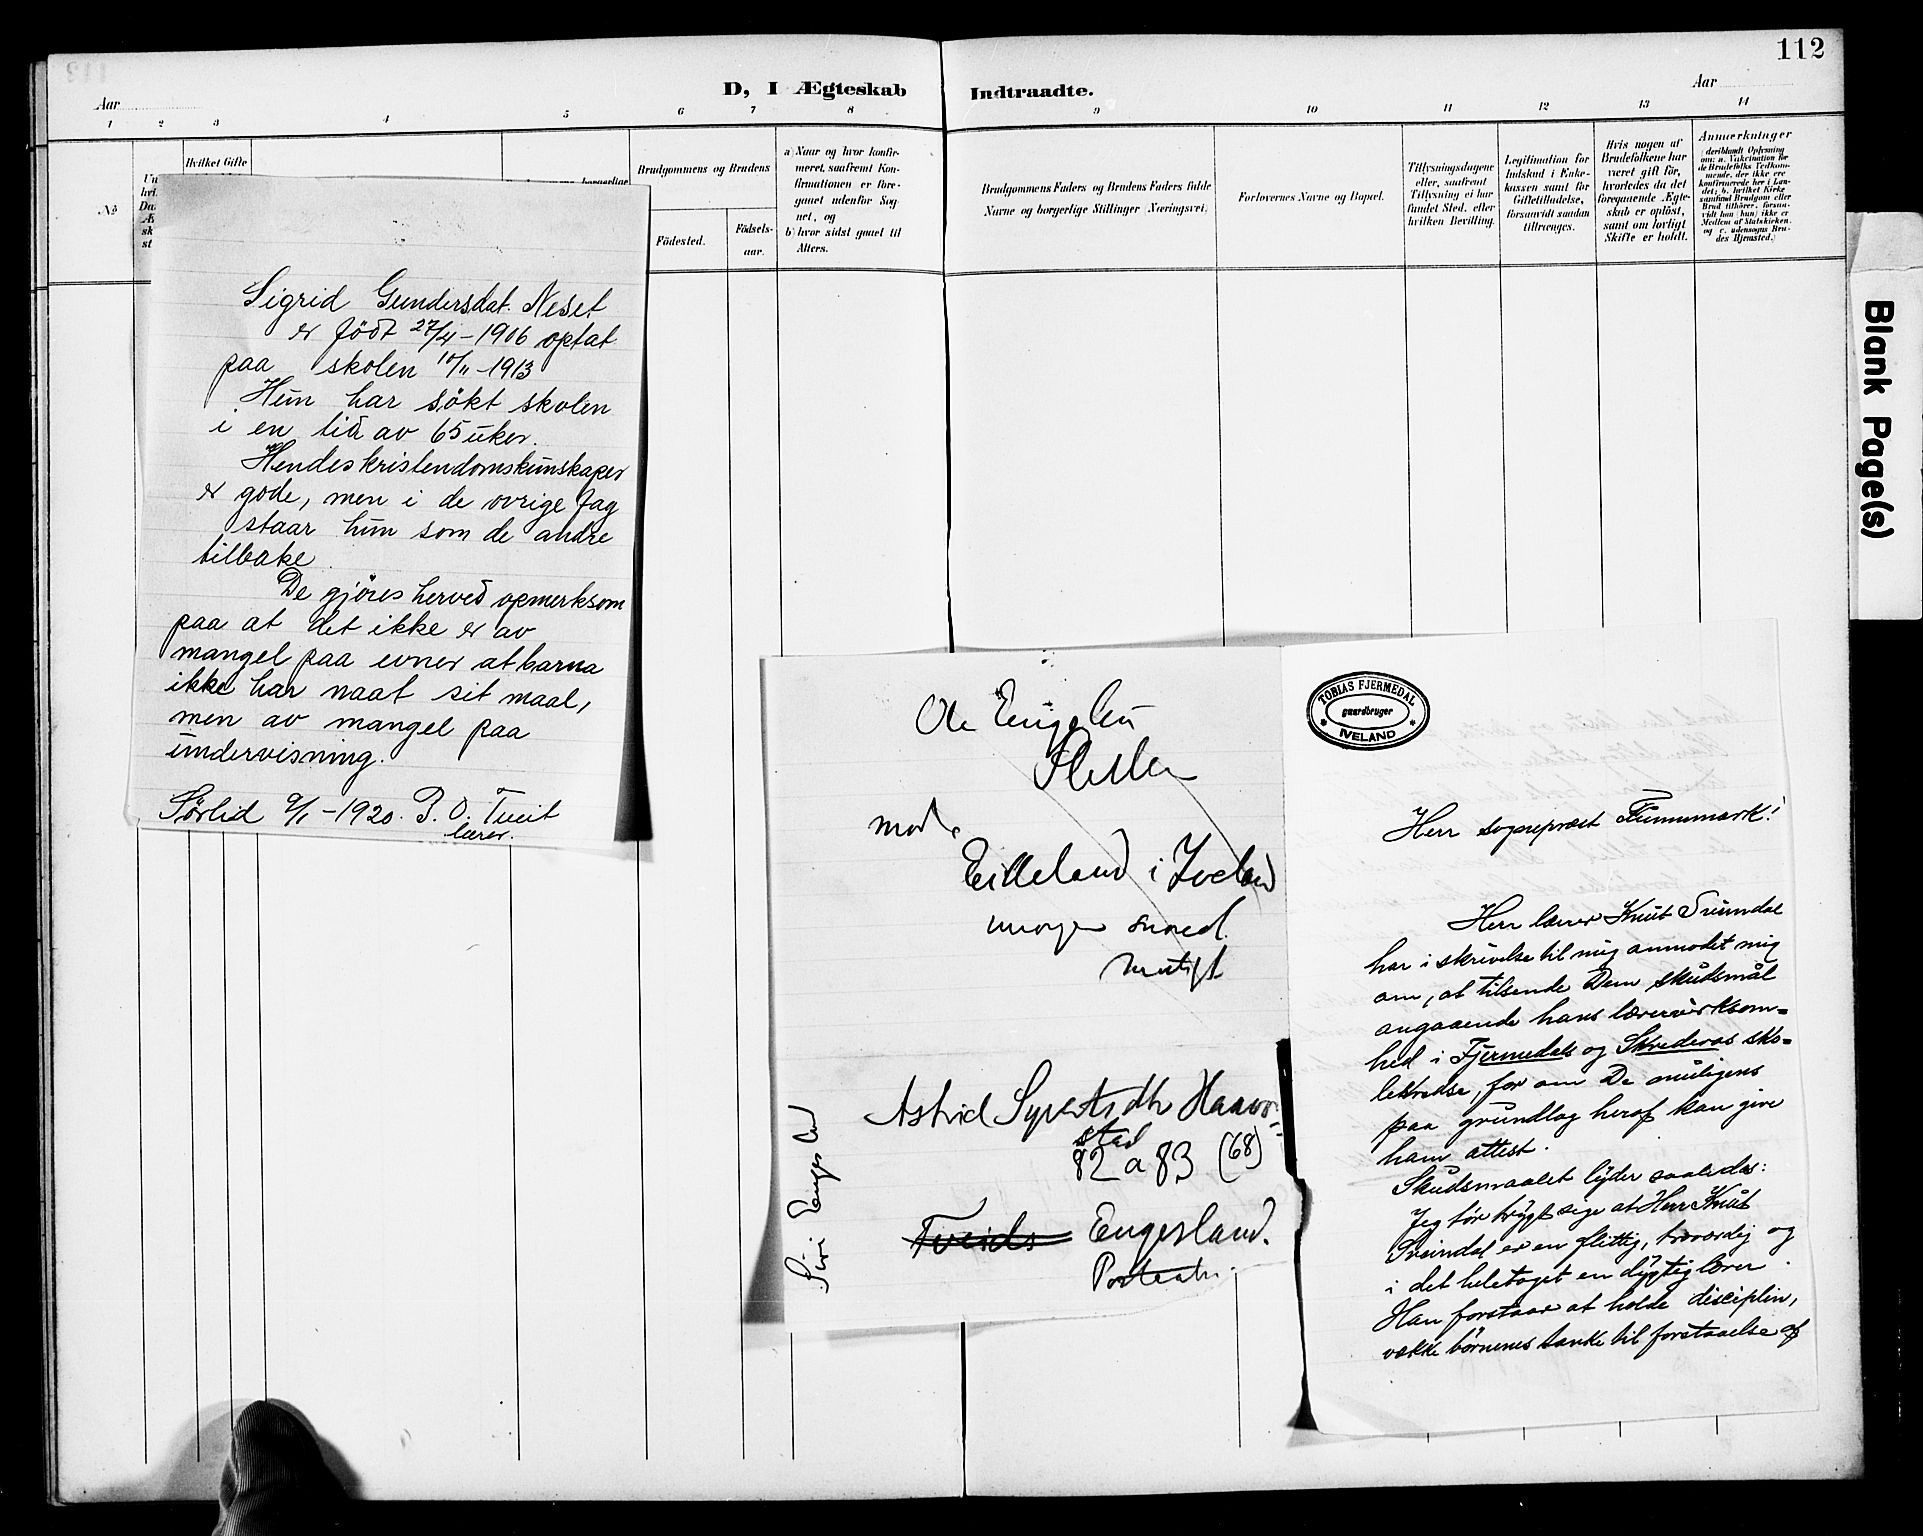 112
D, I Ægteskab Indtraadte.
Aar
Aar
1 2 3 4 5 6 7 8 9 10 11 12 13 14
No
Hvilket Gifte
Brudgommens og Brudens
Födested.
Födsels-
aar.
a) Naar og hvor konfir-
meret, saafremt Kon-
firmationen er fore-
gaaet udenfor Sog-
net, og
b) hvor sidst gaaet til
Alters.
Brudgommens Faders og Brudens Faders fulde
Navne og borgerlige Stillinger (Næringsvei)
Forlovernes Navne og Bopæl.
Tillysningsdagene
eller, saafremt
Tillysning ei har
fundet Sted, efter
hvilken Bevilling.
Legitimation for
Indskud i Enke-
kassen samt for
Giftetilladelse,
forsaavidt saadan
tiltrænges.
Hvis nogen af
Brudefolkene har
været gift för,
hvorledes da det
foregaaende Ægte-
skab er oplöst,
samt om lovligt
Skifte er holdt.
Anmærkninger
(deriblandt Oplysning
om: a. Vakcination for
de Brudefolks Vedkom-
mende, der ikke ere
konfirmerede her i Lan-
det; b. hvilket Kirke-
samfund Brudgom eller
Brud tilhörer, forsaa-
vidt han (hun) ikke er
Medlem af Statskirken,
og c. udensogns Bru-
des Hjemsted.)
Blank Page(s)
Sigrid Gundersdat. Neset
er födt 27/4 - 1906 optat
paa skolen 10/11 - 1913
Hun har sökt skolen
i en tid av 65 uker.
Hendes kristendomskunskaper
er gode, men i de øvrige fag
staar hun som de andre
tilbake.
De gjöres herved opmerksom
paa at det ikke er av
mangel paa evner at barna
ikke har naat sit maal,
men av mangel paa
undervisning.
Sörlid 9/1 - 1920. P. O. Tveit
lærer.
Ole
Eilleland i Iveland
morgen
Astrid Syvertsdtr Haavor=
stad
82 a 83 (68)
Tveids Engesland.
Siri Engesland
TOBIAS FJERMEDAL
gaardbruger
IVELAND
Herr sognepræst Finnmark!
Herr lærer Knut Sveindal
har i skrivelse til mig anmodet mig
om, at tilsende Dem skudsmål
angaaende hans lærervirksom=
hed i Fjermedals og Skrederas sko=
lekredse, for om De muligens
paa grundlag heraf kan give
ham attest.
Skudsmaalet lyder saaledes:
Jeg tør trygt sige at Herr Knut
Sveindal er en flittig, troværdig og
i det heletaget en dygtig lærer.
Han forstaar at holde disciplin,
vække børnenes tanke til forstaaelse af